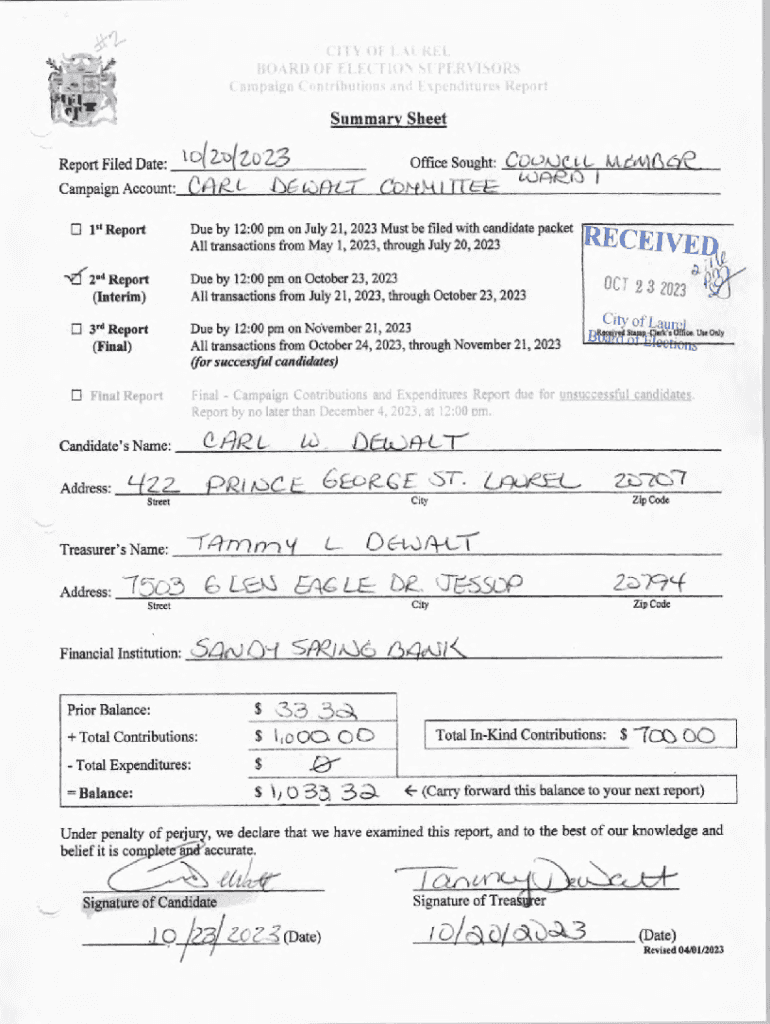 #2
CITY OF LAUREL
BOARD OF ELECTION SUPERVISORS
Campaign Contributions and Expenditures Report
Summary Sheet
Report Filed Date: 10/20/2023 Office Sought: COUNCIL MEMBER
WARD 1
Campaign Account: CARL DEWALT COMMITTEE
☐ 1st Report Due by 12:00 pm on July 21, 2023 Must be filed with candidate packet
All transactions from May 1, 2023, through July 20, 2023
RECEIVED
OCT 23 2023
City of Laurel
Board of Elections
Received Stamp-Clerk's Office Use Only
☑ 2nd Report Due by 12:00 pm on October 23, 2023
(Interim) All transactions from July 21, 2023, through October 23, 2023
☐ 3rd Report Due by 12:00 pm on November 21, 2023
(Final) All transactions from October 24, 2023, through November 21, 2023
(for successful candidates)
☐ Final Report Final - Campaign Contributions and Expenditures Report due for unsuccessful candidates.
Report by no later than December 4, 2023, at 12:00 pm.
Candidate's Name: CARL W. DEWALT
Address: 422 PRINCE GEORGE ST. LAUREL 20707
Street City Zip Code
Treasurer's Name: TAMMY L DEWALT
Address: 7503 GLEN EAGLE DR. JESSUP 20794
Street City Zip Code
Financial Institution: SANDY SPRING BANK
Prior Balance: $ 33 32
+ Total Contributions: $ 1,000.00 Total In-Kind Contributions: $ 700 00
- Total Expenditures: $ 0
= Balance: $ 1,033 32 ← (Carry forward this balance to your next report)
Under penalty of perjury, we declare that we have examined this report, and to the best of our knowledge and
belief it is complete and accurate.
Tammy DeWalt
Signature of Candidate Signature of Treasurer
10/23/2023 (Date) 10/20/2023 (Date)
Revised 04/01/2023